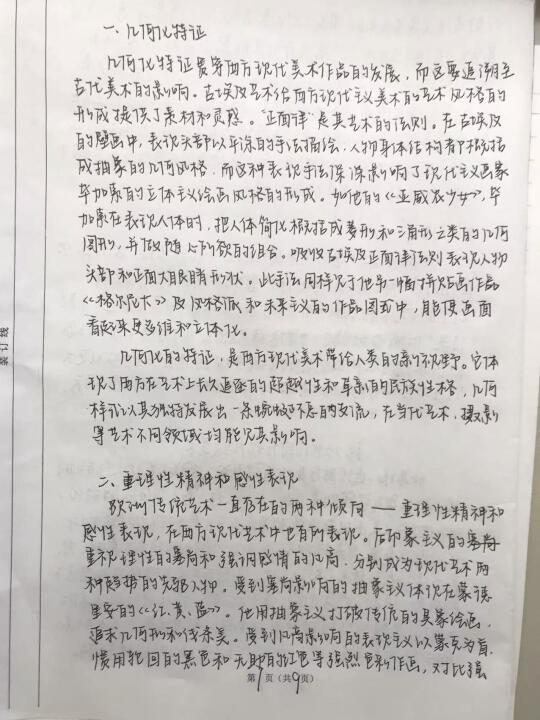 一、几何化特证
几何化特证贯穿西方现代美术作品的发展，而这要追溯至
古代美术的影响。古埃及艺术给西方现代主义美术的艺术风格的
形成提供了素材和灵感。"正面律"是其艺术的法则。在古埃及
的壁画中，表现头部以平涂的手法描绘，人物身体结构都概括
成抽象的几何风格，而这种表现手法深深影响了现代主义画家
毕加索的立体主义绘画风格的形成。如他的《亚威农少女》，毕
加索在表现人体时，把人体简化概括成菱形和三角形之类的几何
图形，并做随心所欲的组合。吸收古埃及正面律法则表现人物
头部和正面大眼睛形状。此手法同样见于他另一幅拼贴画作品
《格尔尼卡》及风格派和未来主义的作品图式中，能使画面
看起来更多维和立体化。
几何化的特征，是西方现代美术带给人类的新视野。它体
现了西方在艺术上长久追逐的超越性和革新的民族性格，几何
样式以其独特发展出一条蜿蜒不息的支流，在当代艺术、摄影
等艺术不同领域均能见其影响。
二、重理性精神和感性表现
欧洲传统艺术一直存在的两种倾向——重理性精神和
感性表现，在西方现代艺术中也有所表现。后印象主义的塞尚
重视理性的塞尚和强调感情的凡高，分别成为现代艺术两
种趋势的先驱人物。受到塞尚影响的抽象主义体现在蒙德
里安的《红、黄、蓝》。他用抽象主义打破传统的具象绘画，
追求几何形和线条美。受到凡高影响的表现主义以蒙克为首，
惯用轮回的黑色和无助的红色等强烈色彩作画，对比强
第7页（共9页）
装订线